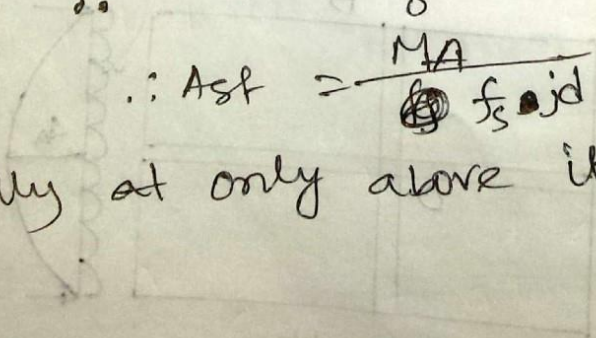 ∴ Ast = MA / fs · jd
at only above